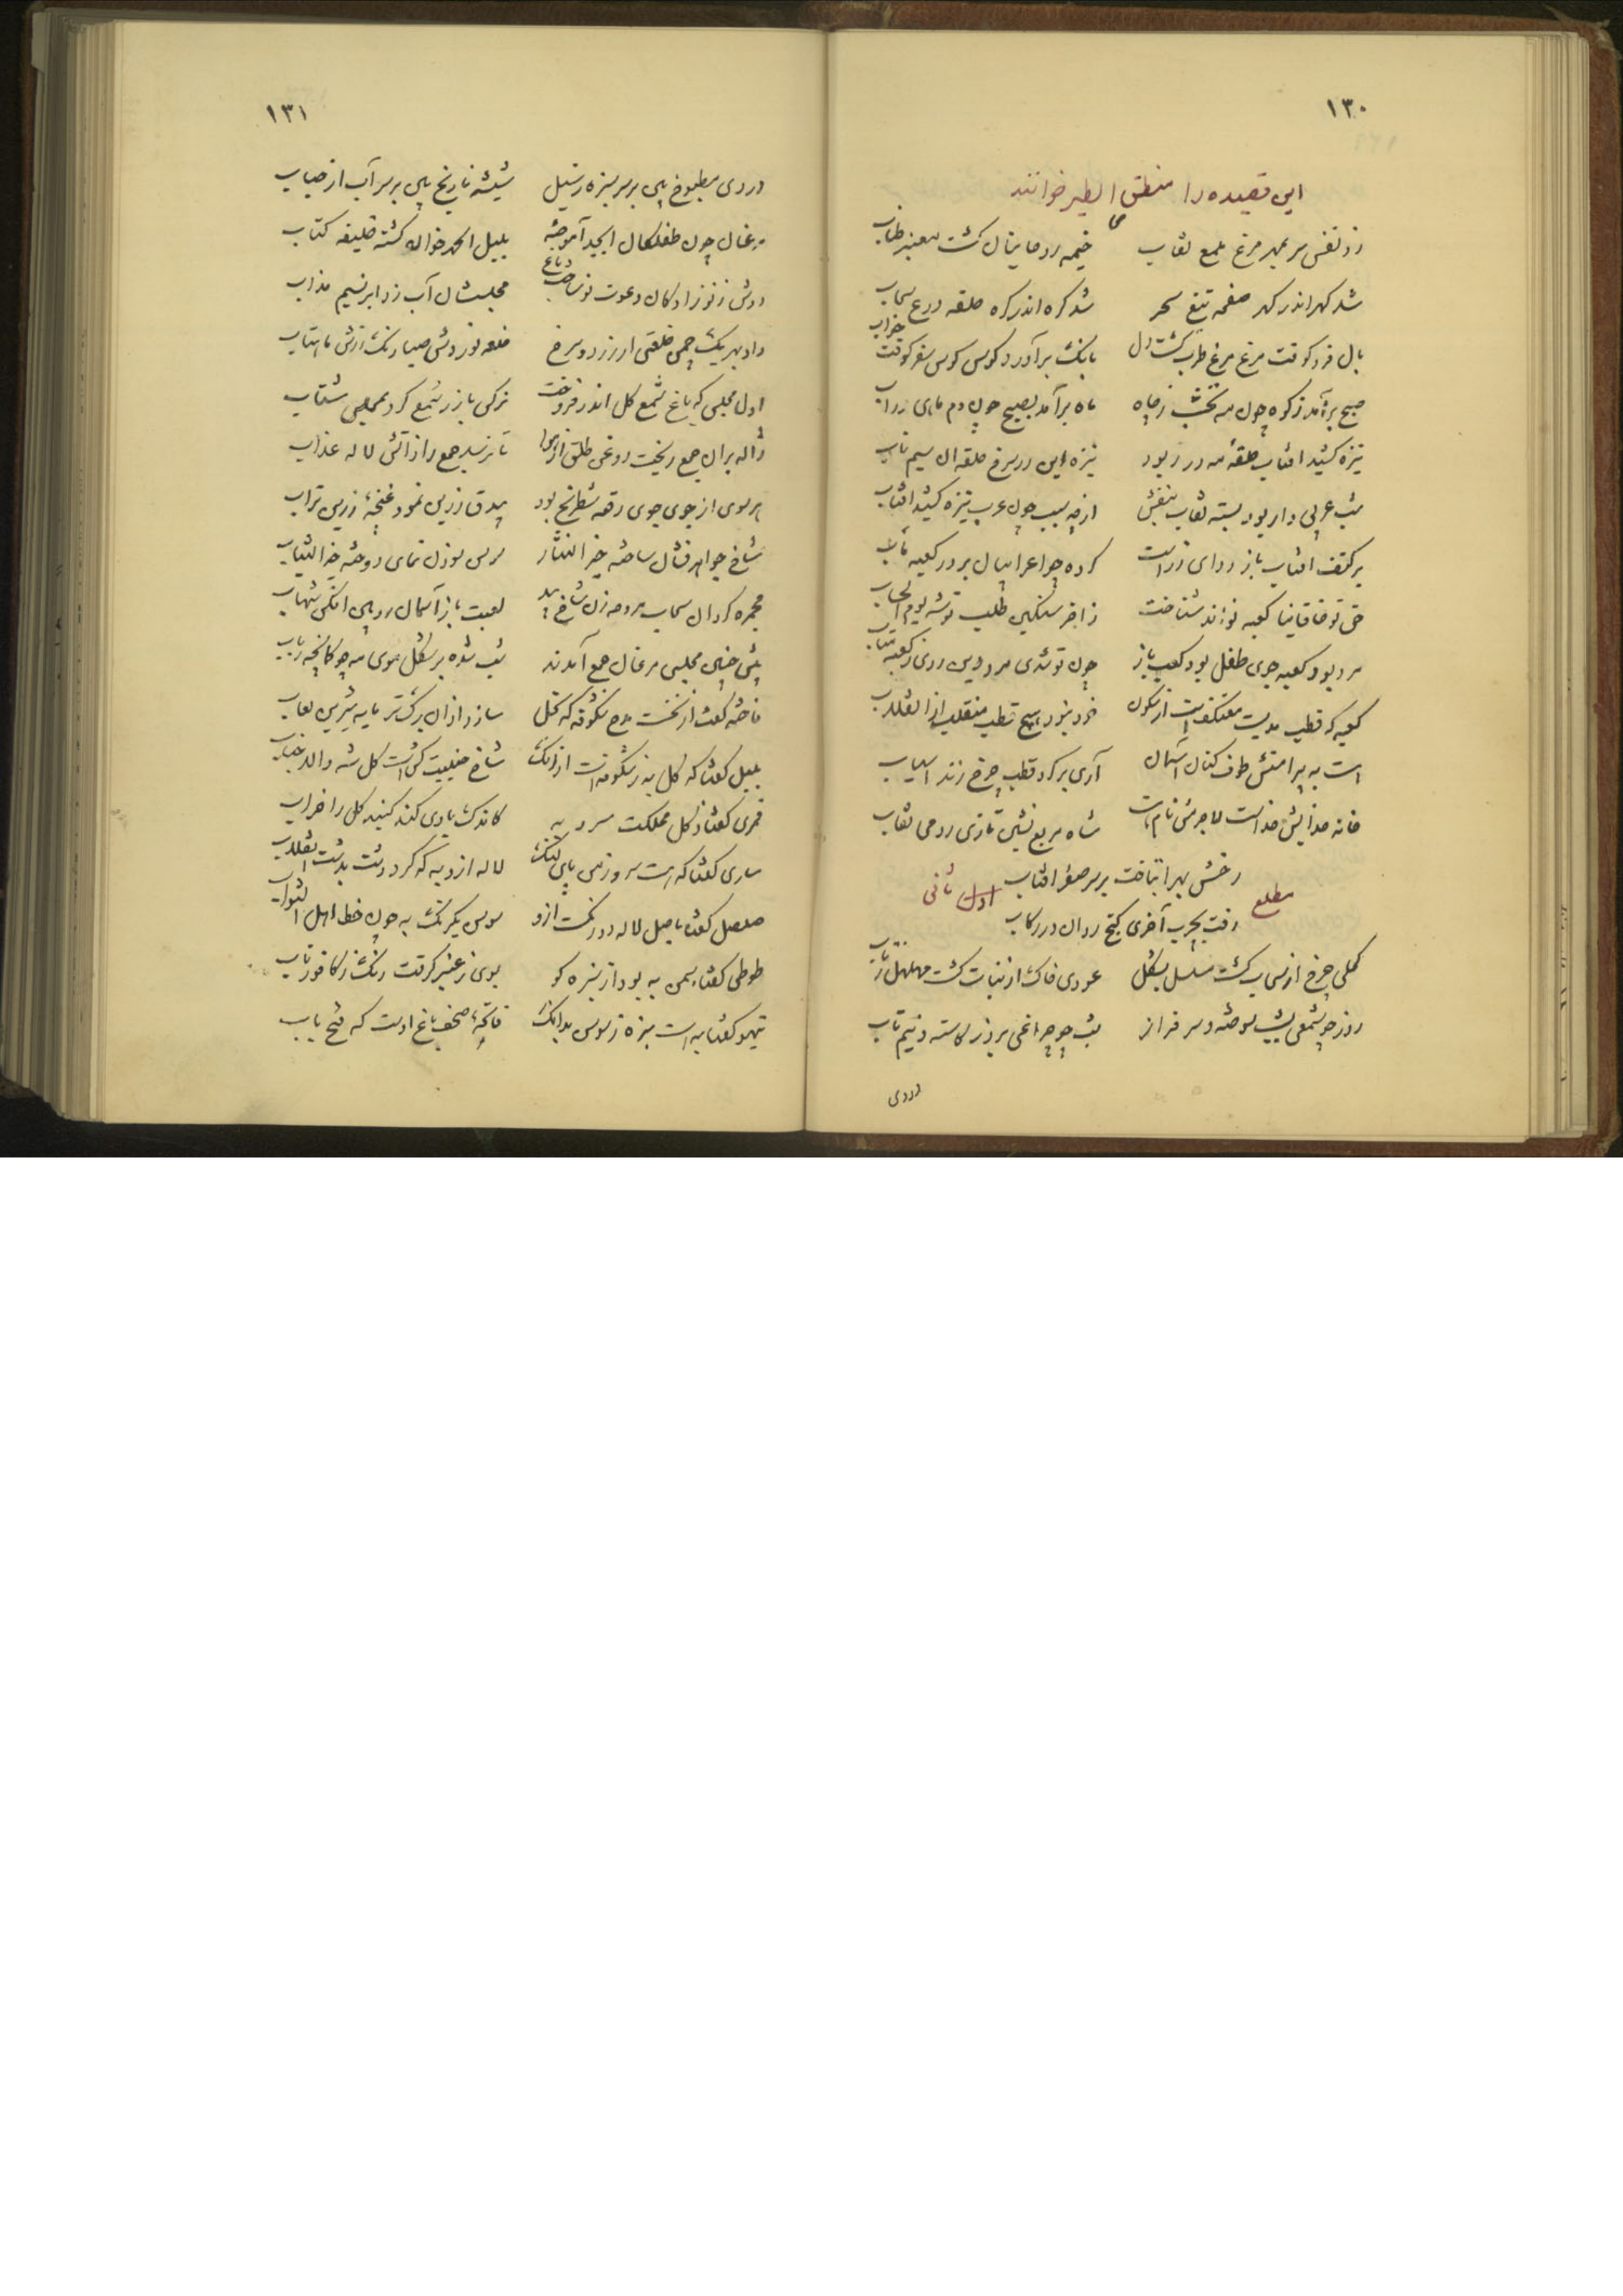 ۱۳۰
این قصیده را منطق الطیر خوانند
زد نفس سر بمهر مرغ ملمع نقاب خیمه روحانیان گشت معنبر طناب
شد گهر اندر گهر صفحه تیغ سحر شد گره اندر گره حلقه درع سحاب
بال فرو کوفت مرغ مرغ طرب گشت دل بانگ برآورد کوس کوس سفر کوفت خواب
صبح برآمد ز کوه چون مه نخشب ز چاه ماه برآمد بصبح چون دم ماهی ز آب
نیزه کشید افتاب حلقه مه در ربود نیزه این زر سرخ حلقه آن سیم ناب
شب عربی وار بود بسته نقاب بنفش از چه سبب چون عرب نیزه کشید افتاب
بر کتف افتاب باز ردای زرست کرده چو اعرابیان بر در کعبه مآب
حق تو خاقانیا کعبه تواند شناخت ز آخر سنگین طلب توشه یوم الحساب
مرد بود کعبه جوی طفل بود کعب باز چون تو شدی مرد دین روی ز کعبه متاب
کعبه که قطب هدیست معتکفست از سکون خود نبود هیچ قطب منقلب از انقلاب
هست به پیرامنش طوف کنان آسمان آری بر گرد قطب چرخ زند آسیاب
خانه خدایش خداست لاجرمش نام هست شاه مربع نشین تازی رومی نقاب
رخش بهرا بتاخت بر سر صفر افتاب
مطلع ثانی
رفت بچرب آخری گنج روان در رکاب
کحلی چرخ از سحاب گشت مسلسل بشکل عودی خاک از نبات گشت مهلهل بتاب
روز چو شمعی بشب سوخته و سرفراز شب چو چراغی بروز کاسته و نیم تاب
دردی
۱۳۱
دردی مطبوخ بین بر سر سبزه ز سیل شیشه نارنج بین بر سر آب از حباب
مرغان چون طفلکان ابجد آموخته بلبل الحمد خوان گشته خلیفه کتاب
دوش ز نوزادگان دعوت نو ساخت باغ مجلسشان آب زد ابر بسیم مذاب
داد بهر یک چمن خلعتی از زرد و سرخ خلعه نوردش صبا رنگ رزش ماهتاب
اول مجلس که باغ شمع گل اندر فروخت نرگس با زر شمع کرد بمجلس شتاب
ژاله بران جمع ریخت روغن طلق از هوا تا نرسد جمع را ز آتش لاله عذاب
هر سوی از جوی جوی رقعه شطرنج بود بیدق زرین نمود غنچه زرین تراب
شاخ جواهر فشان ساخته خیر النثار سوسن سوزن نمای دوخته خیر الثیاب
مجمره گردان سحاب مروحه زن شاخ بید لعبت باز آسمان زوبین افکن شهاب
پیش چنین مجلس مرغان جمع آمدند شب شده بر شکل موی مه چو کمانچه رباب
فاخته گفت از نخست مدح شکوفه که نحل سازد از آن برگ تر مایه شیرین لعاب
بلبل گفتا که گل به ز شکوفه است از آنک شاخ جنیبت کش است گل شه والا جناب
قمری گفتا ز گل مملکت سرو به کاندک بادی کند گنبد گل را خراب
ساری گفتا که هست سرو ز من پای لنگ لاله ازو به که کرد دشت بدشت انقلاب
صلصل گفتا باصل لاله دو رنگست ازو سوسن یکرنگ به چون خط اهل الثواب
طوطی گفتا سمن به بود از سبزه کو بوی ز عنبر گرفت رنگ ز کافور ناب
تیهو گفتا به است سبزه ز سوسن بدانک فاتحه صحف باغ اوست که فتح باب